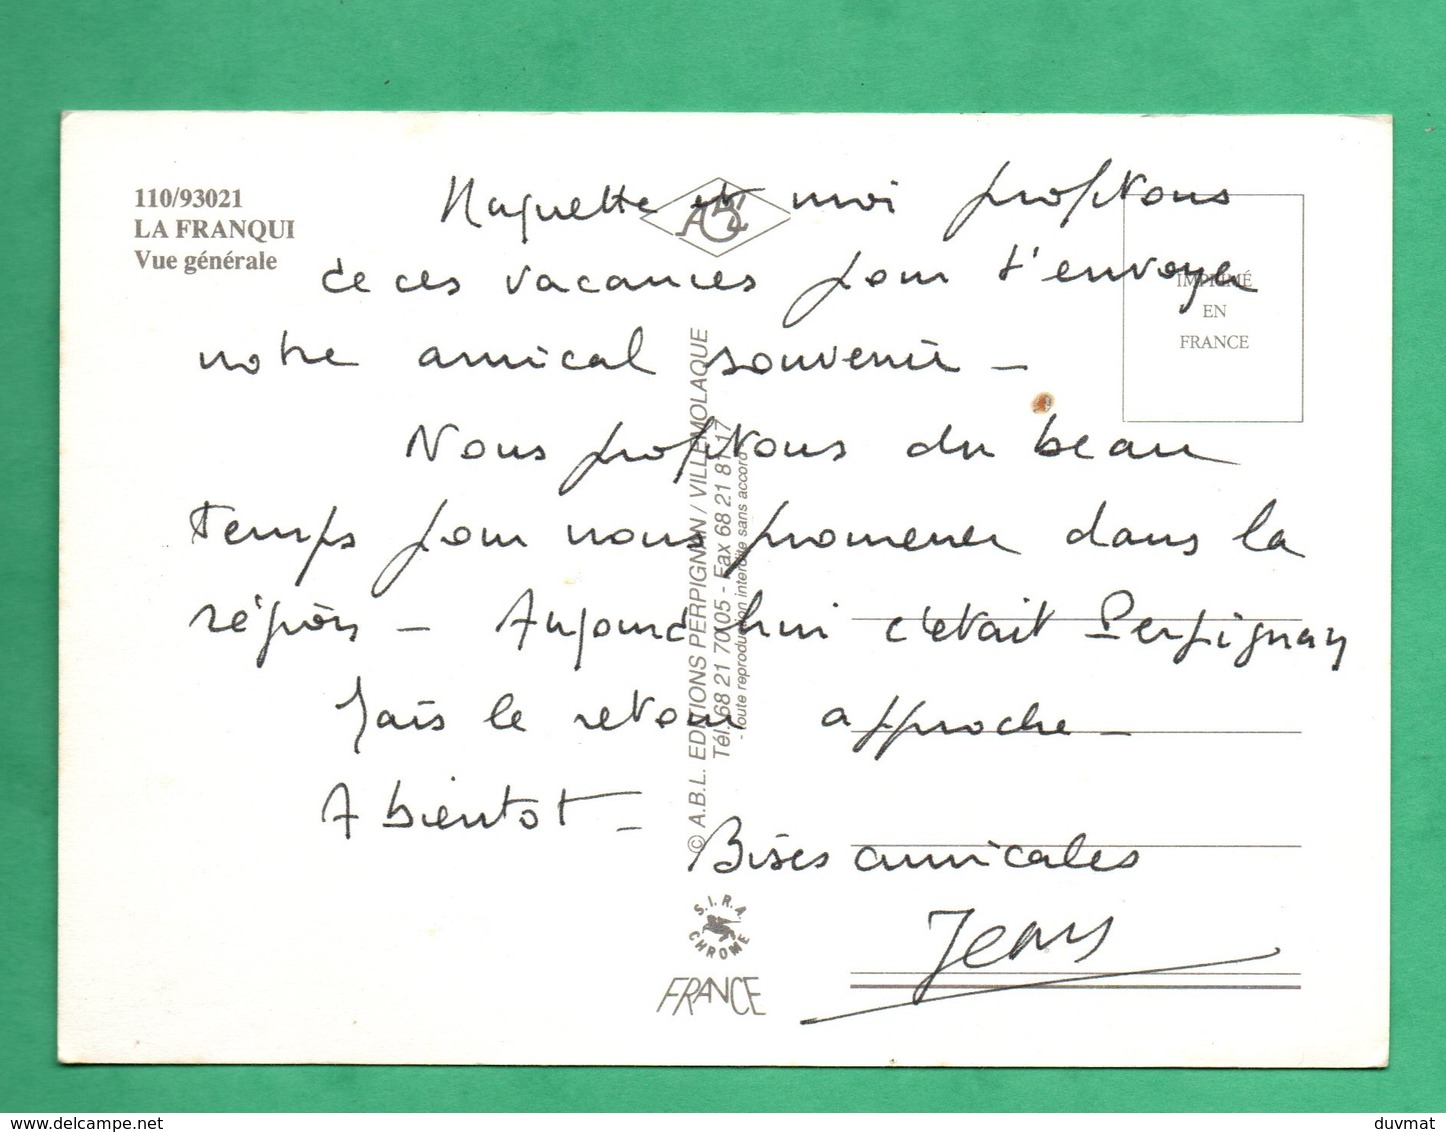 110/93021
LA FRANQUI
Vue générale
ABL
IMPRIMÉ
EN
FRANCE
Huguette et moi profitons
de ces vacances pour t'envoyer
notre amical souvenir -
Nous profitons du beau
temps pour nous promener dans la
région - Aujourd'hui c'était Perpignan
Mais le retour approche -
A bientôt -
Bises amicales
Jean
© A.B.L. EDITIONS PERPIGNAN / VILLEMOLAQUE
Tél. 68 21 70 05 - Fax 68 21 81 17
- Toute reproduction interdite sans accord -
S.I.R.A.
CHROME
FRANCE
delcampe.net
duvmat